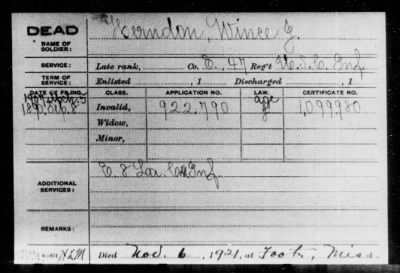 DEAD
NAME OF SOLDIER: Herndon, Wince J.
SERVICE: Late rank, Co. E, 47 Reg't U.S.C. Inf.
TERM OF SERVICE: Enlisted , 1 Discharged , 1
DATE OF FILING. CLASS. APPLICATION NO. LAW. CERTIFICATE NO.
Invalid, 922,790 1,099,980
Widow,
Minor,
ADDITIONAL SERVICES: E. 8 La. Inf.
REMARKS:
Died Nov. 6, 1921, at Foote, Miss.